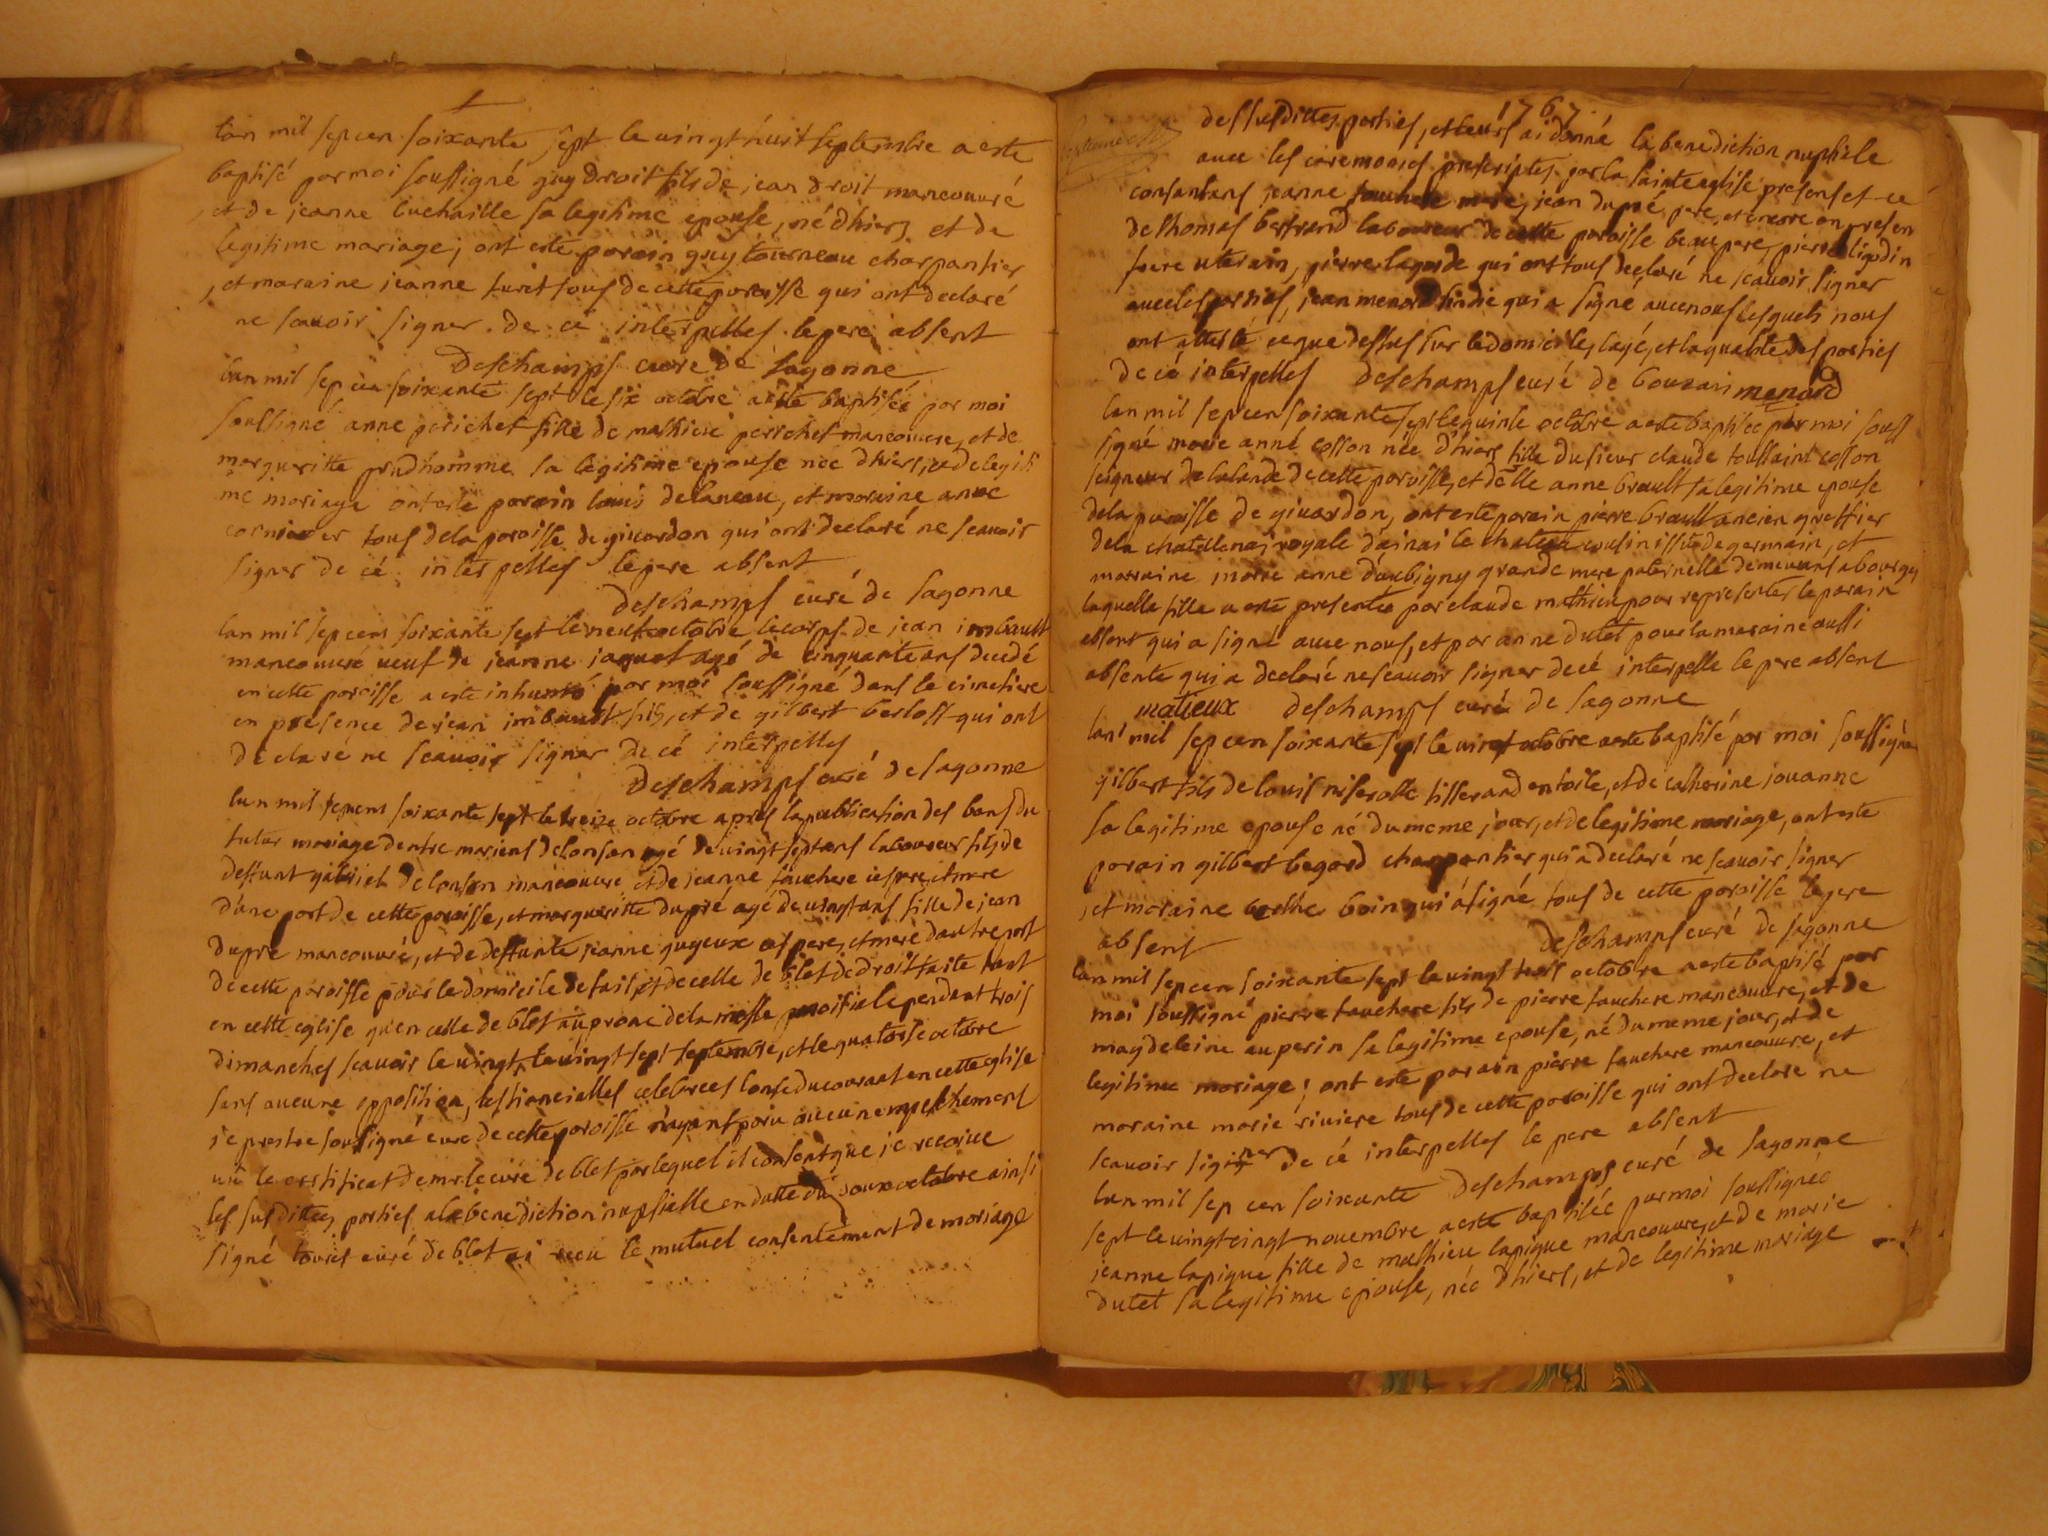 lan mil sep cen soixante sept le vingt huit septembre a esté
baptisé par moi soussigné guy droit fils de jean droit manœuvré
et de jeanne luchaille sa legitime epouse, né dhiers et de
legitime mariage, ont esté parain guy tourneau charpantier
, et maraine jeanne turit tous de cette paroisse qui ont declaré
ne scavoir signer. de cé interpelles le pere absent
Deschamps curé de sagonne
lan mil sep cen soixante sept le six octobre a esté baptiséé par moi
soussigné anne perichet fille de mathieu perichet manœuvre, et de
margueritte prudhomme sa legitime epouse née dhiers, et de legiti
me mariage ont esté parain louis delaneau, et maraine anne
tous de la paroisse de givardon qui ont declaré ne scavoir
signer de cé interpelles le pere absent
deschamps curé de sagonne
lan mil sep cens soixante sept le neuf octobre le corps de jean imbault
manœuvré veuf de jéanne jaquet agé de cinquante ans decedé
en cette paroisse a esté inhumé par moi soussigné dans le cimetiere
en presence de jean imbault fils, et de gilbert berloss qui ont
declaré ne scavoir signer de cé interpelles
Deschamps curé de sagonne
lan mil sepcens soixante sept le treize octobre apres la publication des bans du
futur mariage dentre mariens delonson agé de vingt sept ans laboureur fils de
deffunt gabriel delonson manœuvre et de jeanne fauchere ses pere, et mere
dune part de cette paroisse, et margueritte dupré agé de vingt ans fille de jean
dupre manœuvré, et de deffunte jeanne guyeux ses pere, et mere dautre part
de cette paroisse pour le domicile de fait, et de celle de blet de droit faite tant
en cette eglise qu'en celle de blet au prone de la messe paroissiale pendant trois
dimanches scavoir le vingt, le vingt sept septembre, et le quatorse octobre
sans aucune opposition, les fiancialles celebrees lonse du courant en cette eglise
je prestre soussigné curé de cette paroisse n'ayant paru aucun empeschement
vû le certificat de mr le curé de blet par lequel il consent que je recoive
les susdittes parties a la benediction nupsialle en datte du douze octobre ainsi
signé curé de blet ai recu le mutuel consentement de mariage
1767
des susdittes parties, et leurs ai donné la benediction nuptiele
avec les ceremonies prescriptes par la sainte eglise presens et ce
consantans jeanne fauchere mere, jean dupré pere, et encore en presen
de thomas bertrand laboureur de cette paroisse beau pere, pierre ligodin
frere uterain, pierre lagarde qui ont tous declaré ne scavoir signer
avec les parties, jean menard sindic qui a signé avec nous lesquels nous
ont attesté ce que dessus sur le domicile, lagé, et la qualité des parties
de cé interpelles deschamps curé de menard
lan mil sep cen soixante sept le quinse octobre a esté baptiséé par moi souss
signé marie anné cosson née d'hiers fille du sieur claude toussaint cosson
seigneur de lalande de cette paroisse, et de dlle anne brault sa legitime epouse
de la paroisse de givardon, ont esté parain pierre brault ancien greffier
de la chatellenai royale d'ainai le chateau cousin issu de germain, et
marraine marie anne daubigny grande mere paternelle demeurans a bourges
laquelle fille a esté presentée par claude mathieu pour representer le parain
absent qui a signé avec nous, et par anne dutet pour la maraine aussi
absente qui a declaré ne scavoir signer de cé interpelle le pere absent
matieux deschamps curé de sagonne
lan mil sep cen soixante sept le vingt octobre a esté baptisé par moi soussigné
gilbert fils de louis tisserand en toile, et de catherine jouanne
sa legitime epouse né du meme jour, et de legitime mariage, ont esté
parain gilbert begard charpantier qui a declaré ne scavoir signer
, et maraine boin qui a signé tous de cette paroisse le pere
absent deschamps curé de sagonne
lan mil sep cen soixante sept le vingt trois octobre a esté baptisé par
moi soussigné pierre fauchere fils de pierre fauchere manœuvre, et de
magdeleine auperin sa legitime epouse, né du meme jour, et de
legitime mariage; ont esté parain pierre fauchere manœuvre, et
maraine marie riviere tous de cette paroisse qui ont declare ne
scavoir signer de cé interpelles le pere absent
lan mil sep cen soixante deschamps curé de sagonne
sept le vingt cinqt novembre a esté baptisée par moi soussigneé
jeanne lapique fille de mathieu lapique manœuvre, et de marie
dutet sa legitime epouse, née dhiers, et de legitime mariage